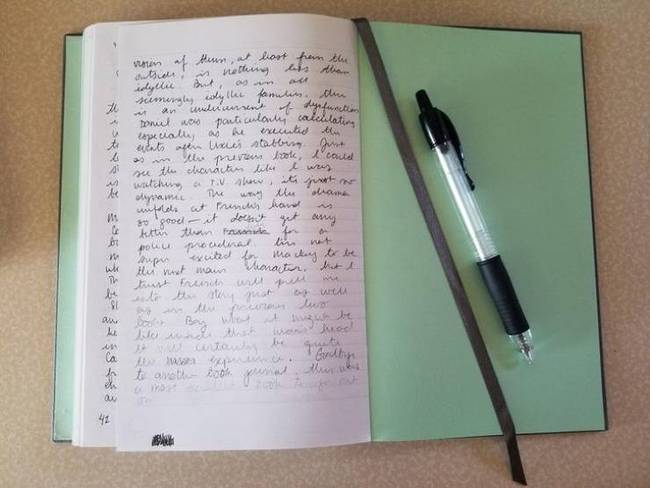 vision of them, at least from the
outside, is nothing less than
idyllic. But, as in all
seemingly idyllic families, there
is an undercurrent of dysfunction
Daniel was particularly calculating
especially as he executed the
events after Lexie's stabbing. Just
as in the previous book, I could
see the characters like I was
watching a T.V. show, it's just so
dynamic. The way the drama
unfolds at French's hand is
so good — it doesn't get any
better than for a
police procedural. I'm not
super excited for Mackey to be
the next main character, but I
trust French will pull me
into the story just as well
as in the previous two
books. Boy what it might be
like inside that man's head
it will certainly be quite
the experience. Goodbye
to another book journal. This was
a most excellent book to go out
on
42